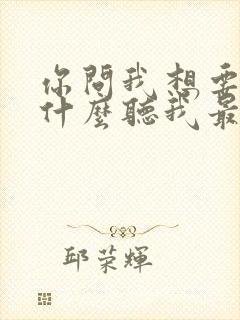 你問我想要
什麼聽我最
邱荣輝